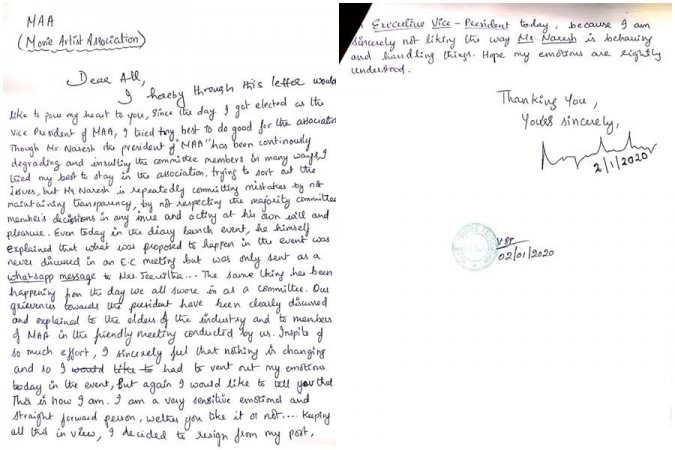 MAA
(Movie Artist Association)
Dear All,
I hereby through this letter would
like to pour my heart to you, Since the day I got elected as the
Vice President of MAA, I tried my best to do good for the association
Though Mr. Naresh the president of "MAA" has been continously
degrading and insulting the committee members in many ways, I
tried my best to stay in the association, trying to sort out the
issues, but Mr Naresh is repeatedly committing mistakes by not
maintaining transparency, by not respecting the majority committee
member's decisions in any issue and acting at his own will and
pleasure. Even today in the diary launch event, he himself
explained that what was proposed to happen in the event was
never discussed in an E.C meeting but was only sent as a
whatsapp message to Mrs. Jeevitha... The same thing has been
happening from the day we all swore in as a committee. Our
grievences towards the president have been clearly discussed
and explained to the elders of the industry and to members
of MAA in the friendly meeting conducted by us. Inspite of
so much effort, I sincerely feel that nothing is changing
and so I would like to had to vent out my emotions
today in the event, But again I would like to tell you that
This is how I am. I am a very sensitive emotional and
straight forward person, wether you like it or not.... Keeping
all this in view, I decided to resign from my post,
Executive Vice - President today, because I am
sincerely not liking the way Mr. Naresh is behaving
and handling things. Hope my emotions are rightly
understood.
Thanking You,
Yours sincerely,
2/1/2020
02/01/2020